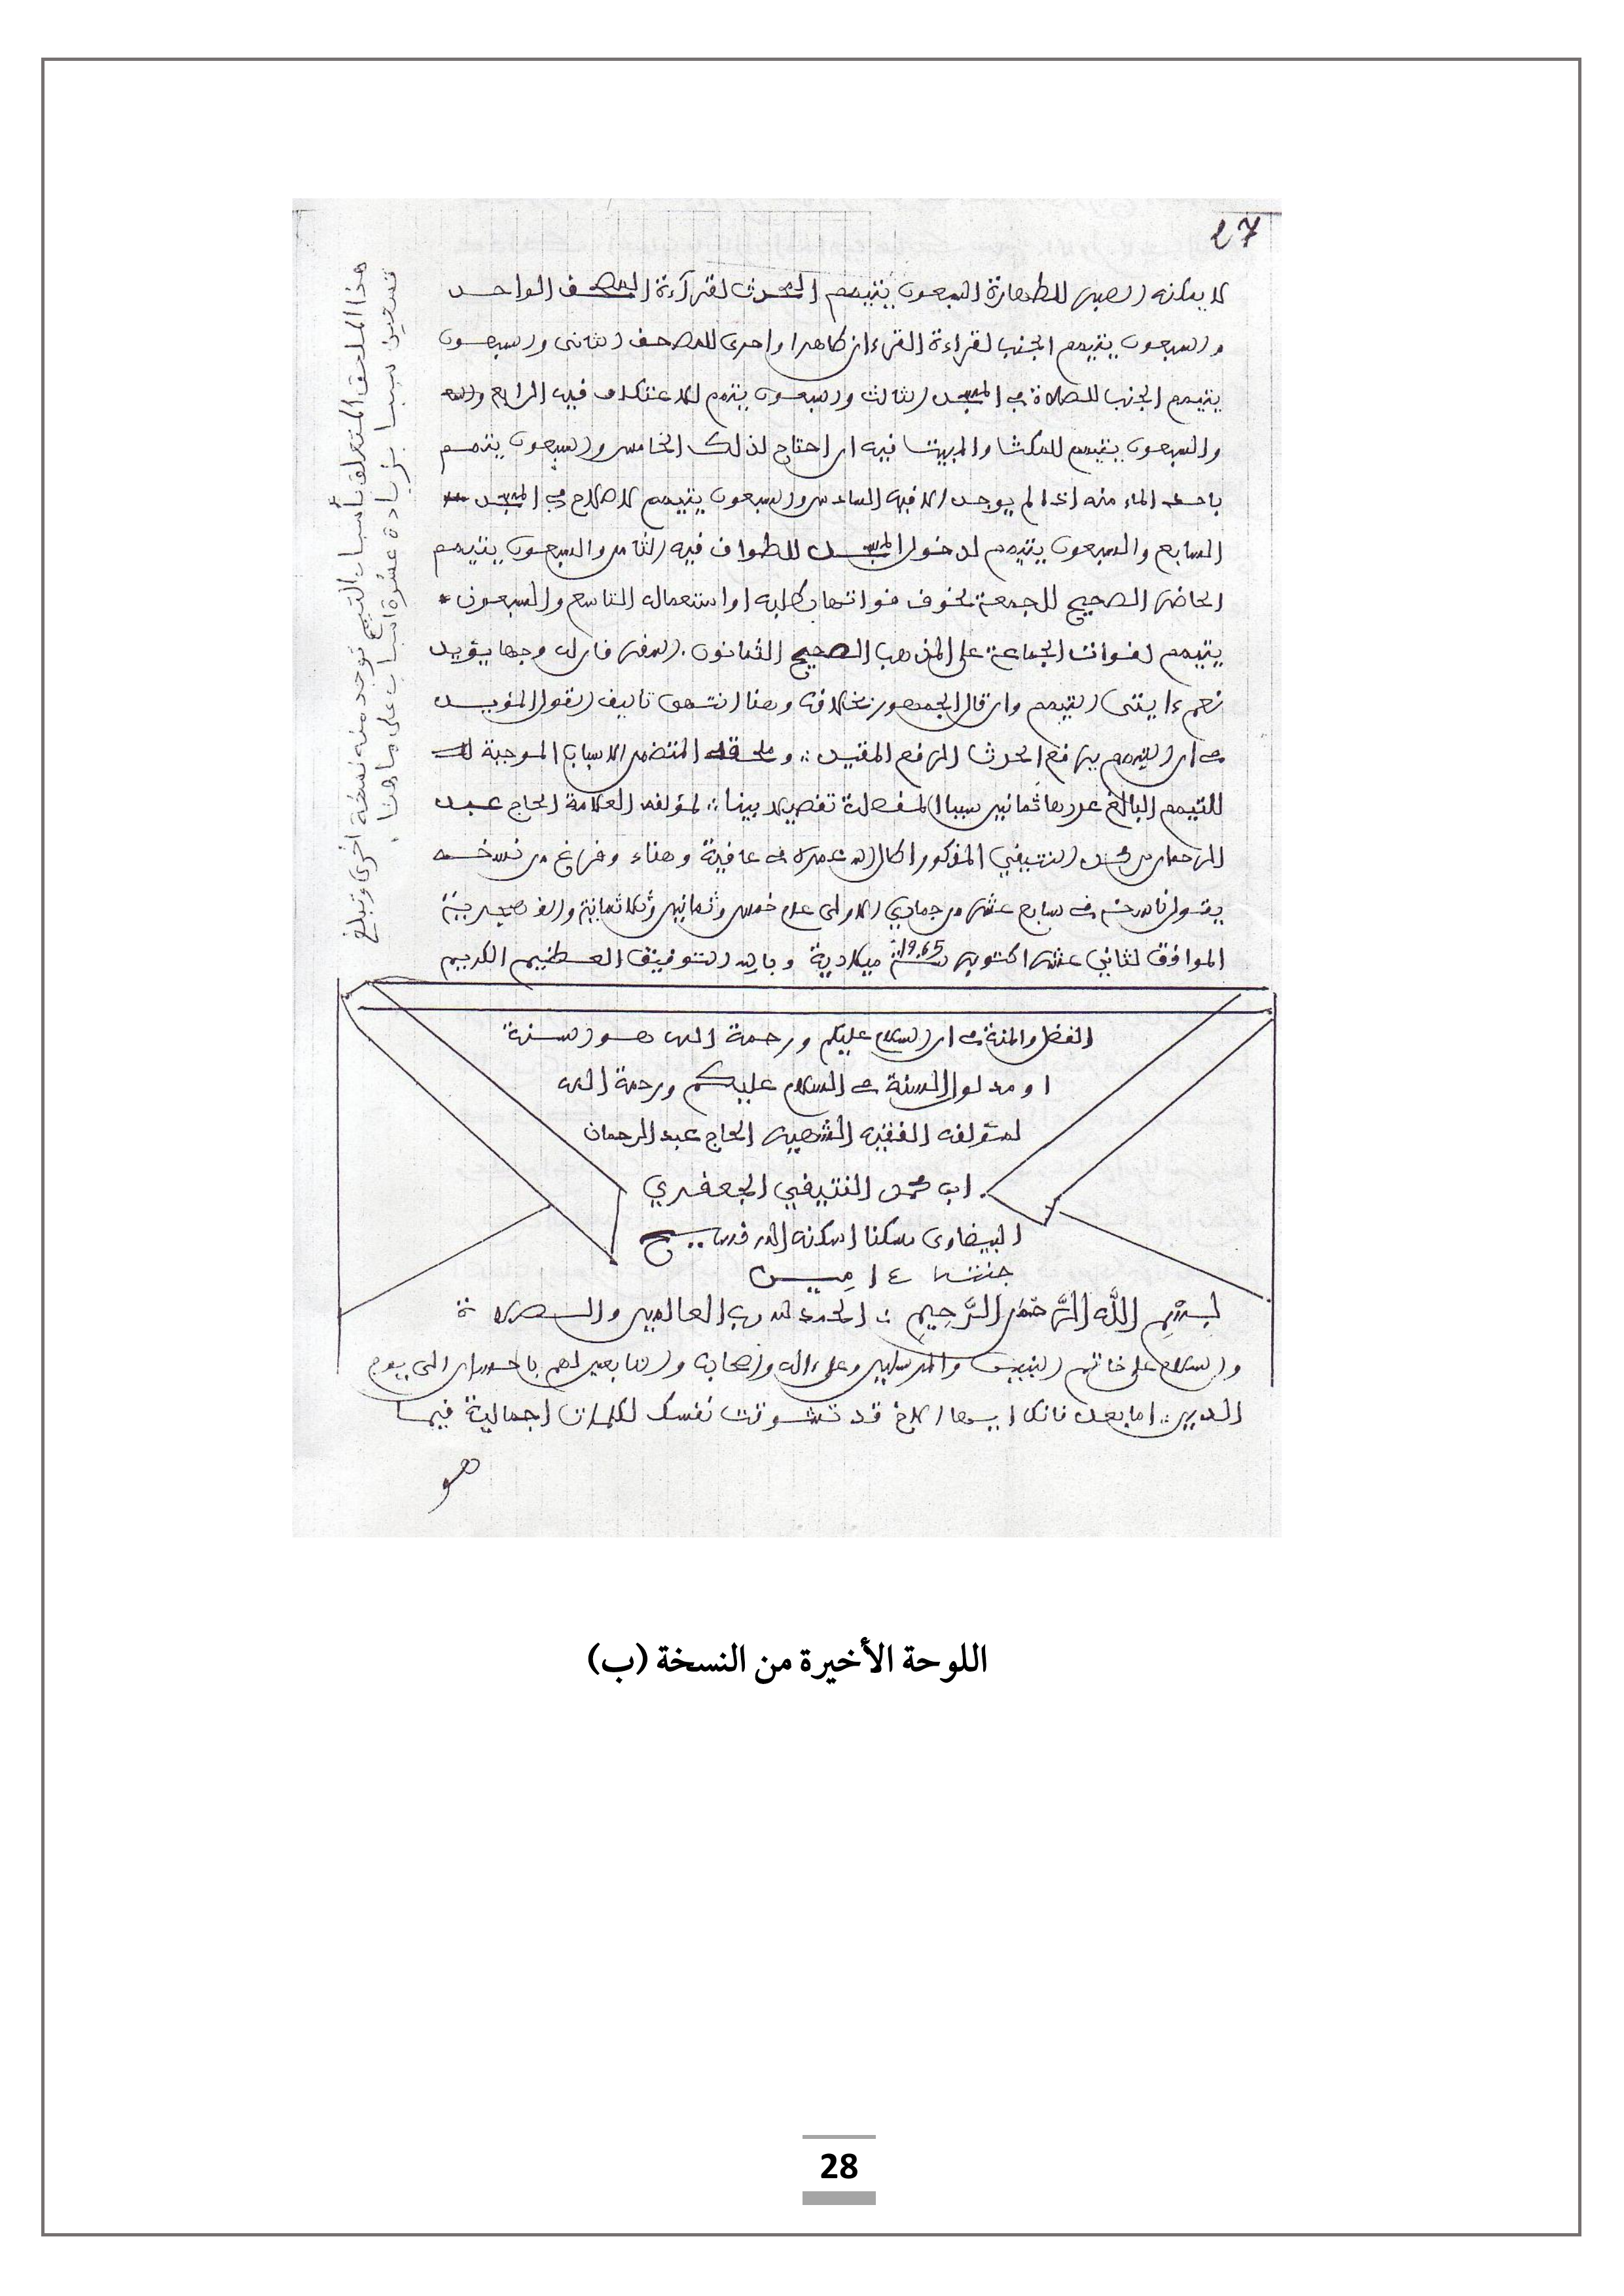 27
لا يمكنه الصبر للطهارة السبعون يتيمم المحدث لقرآءة المصحف الواحد
والسبعون يتيمم الجنب لقراءة القرءان ظاهرا واحرى للمصحف الثانى والسبعون
يتيمم الجنب للصلاة في المسجد الثالث والسبعون يتيمم للاعتكاف فيه الرابع
والسبعون يتيمم للمكث والمبيت فيه ان احتاج لذلك الخامس والسبعون يتيمم
باخذ الماء منه اذا لم يوجد الا فيه السادس والسبعون يتيمم للاصلاح في المسجد
السابع والسبعون يتيمم لدخول المسجد للطواف فيه الثامن والسبعون يتيمم
الحاضر الصحيح للجمعة لخوف فواتها بطلبه او استعماله التاسع والسبعون
يتيمم لفوات الجماعة على المذهب الصحيح الثمانون
التيمم وان قال الجمهور بخلافه وهنا انتهى تاليف القول المفيد
في ان التيمم يرفع الحدث الرفع المقيد وملحقه المتضمن الاسباب الموجبة
للتيمم البالغ عددها ثمانين سببا المفصلة تفصيلا بينا لمؤلفه العلامة الحاج عبد
الرحمان بن محمد النتيفي المذكور اطال الله عمره في عافية وهناء وفرغ من نسخه
يقول ناسخه في سابع عشر من جمادي الاولى عام خمس وثمانين وثلاثمائة والف هجرية
الموافق لثاني عشر اكتوبر سنة 1965 ميلادية وبالله التوفيق العظيم الكريم
الفضل والمنة في ان السلام عليكم ورحمة الله هو السنة
او مدلول السنة في السلام عليكم ورحمة الله
لمؤلفه الفقيه الشهير الحاج عبد الرحمان
ابن محمد النتيفي الجعفري
البيضاوى سكنا اسكنه الله فسيح
جنته ءامين
بِسْمِ اللَّهِ الرَّحْمَنِ الرَّحِيمِ الحمد لله رب العالمين والصلاة
والسلام على خاتم النبيين والمرسلين وعلى ءاله واصحابه والتابعين لهم باحسان الى يوم
الدين اما بعد فانك ايها الاخ قد تشوقت نفسك لكلمات اجمالية فيما
هو
هذا الملحق المتعلق بأسباب التيمم توجد منه نسخة اخرى وتبلغ
تسعين سببا بزيادة عشرة اسباب على ما هنا
اللوحة الأخيرة من النسخة (ب)
28